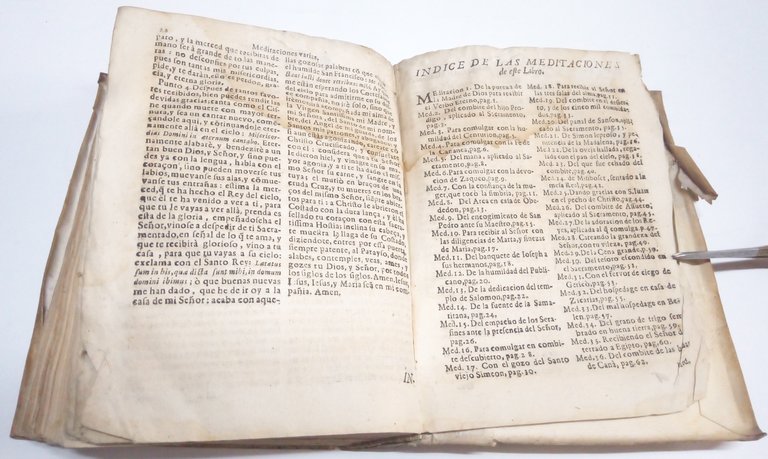 Meditaciones varias.
paro, y la merced que recibiras de
mano serà grande de
ras: no desconfies por tus culpas,
pues son tantas mis misericordias,
pide, y te daràn,
cia, y eterna gloria.
Punto 4. Despues de tantos favo-
res recibidos, bien puedes rendir las
devidas gracias: canta como el Cis-
ne quando muere con mayor ter-
nura, sea un cantar muerto de amor,
cantandole aqui, y continuandole eter-
namente allà en el cielo: Misericor-
dias Domini in æternum cantabo. Eter-
namente alabarè, y bendecirè a un
tan buen Dios, y Señor, y sino pue-
des ya con la lengua, habla con el
coraçon, sino pueden moverse tus
labios, muevanse tus alas, y cõmue-
vanse tus entrañas: estima la mer-
ced, q̃ te ha hecho el Rey del cielo,
que èl te ha venido a ver a ti, para
que tu le vayas a ver allà, prenda es
esta de la gloria, empeñadose ha el
Señor, vinose a despedir de ti Sacra-
mentado, en señal de lo q̃ te ama, y
que te recibirà glorioso, vino a tu
casa, para que tu vayas a su cielo:
exclama con el Santo Rey: Lætatus
sum in his, quæ dicta sunt mihi, in domum
domini ibimus; ò que buenas nuevas
me han dado, que he de ir oy a la
casa de mi Señor; acaba con aque-
llas gozosas palabras cõ que
el humilde San Francisco: Me
me estàn esperando los
cielo para admitirme en su
compañia,
la Virgen Santissima
mi Señora,
Christo Crucificado.
el: considera que
y agonia, y a ti te ha dado el mes-
mo Señor su carne, y sangre en la
tuya: èl muriò en braços de una
cruda Cruz, y tu mueres en los bra-
ços del mismo Señor, fixados abier-
tos para ti: a Christo le abrieron el
Costado con la dura lança, y a ti se
sellado tu coraçon con esta San-
tissima Hostia; inclina su cabeça, y
te muestra la llaga de su Costado,
diziendote, entres por essa puerta
siempre patente, al Parayso, donde
alabes, contemples, veas, ames, y
gozes tu Dios, y Señor, por todos
los siglos de los siglos. Amen. Ie-
sus, Iesus, Iesus, y Maria sea en mi com-
pañia. Amen.
IN-
INDICE DE LAS MEDITACIONES
de este Libro.
Meditacion 1. De la pureza de
la Madre de Dios para recibir
el Verbo Eterno, pag.1.
Med.2. Del combite del hijo Prodi-
go, aplicado al Sacramento,
pag.3.
Med. 3. Para comulgar con la hu-
mildad del Centurion, pag.5.
Med. 4. Para comulgar con la Fè de
la Cananea, pag.6.
Med.5. Del manà, aplicado al Sa-
cramento, pag.8.
Med.6. Para comulgar con la devo-
cion de Zaqueo, pag.10.
Med.7. Con la confiança de la mu-
ger, que tocò la fimbria, pag.11.
Med. 8. Del Arca en casa de Ob-
dedon, pag.13.
Med.9. Del encogimiento de San
Pedro ante su Maestro, pag.
Med.10. Para recibir al Señor con
las diligencias de Marta, y finezas
de Maria, pag.17.
Med.11. Del banquete de Joseph a
sus hermanos, pag.18.
Med.12. De la humildad del Publi-
cano, pag.20.
Med.13. De la dedicacion del tem-
plo de Salomon, pag.22.
Med.14. De la fuente de la Sama-
ritana, pag.24.
Med.15. Del empacho de los Sera-
fines ante la presencia del Señor,
pag.26.
Med.16. Para comulgar en combi-
te descubierto, pag.28.
Med. 17. Con el gozo del Santo
viejo Simeon, pag.30.
Med. 18. Para recibir al Señor en
las tres salas del alma, pag.31.
Med.19. Del combite en el desier-
to, y de los cinco mil combidados,
Med.20. Del panal de Sanson, apli-
cado al Sacramento, pag.35.
Med.21. De Simon leproso, y pe-
nitencia de la Madalena, pag.
Med.22. De la oveja hallada, rega-
lada con el pan del cielo, pag.
Med.23. Del que fue echado del
combite, pag.
Med.24. de Mifiboset, sentado a la
mesa Real, pag.
Med.25. Dando gracias con S. Juan
en el pecho de Christo, pag.
Med.26. Del combite de Assuero,
aplicado al Sacramento, pag.
Med.27. Para el q̃ comulga
Med.28. Careando la grandeza del
Señor, con tu vileza, pag.
Med.29. De la Cena grande, pag.
Med.30. Del tesoro escondido en
el Sacramento, pag.
Med.31. Con el fervor de ciego de
Gericò, pag.
Med.32. Del hospedage en casa de
Zacarias, pag.
Med.33. Del mal hospedage en Be-
len, pag.
Med.34. Del grano de trigo sem-
brado en buena tierra, pag.
Med.35. Recibiendo el Señor des-
terrado a Egipto, pag.60.
Med.36. Del combite de las bodas
de Canà, pag.62.
Med.